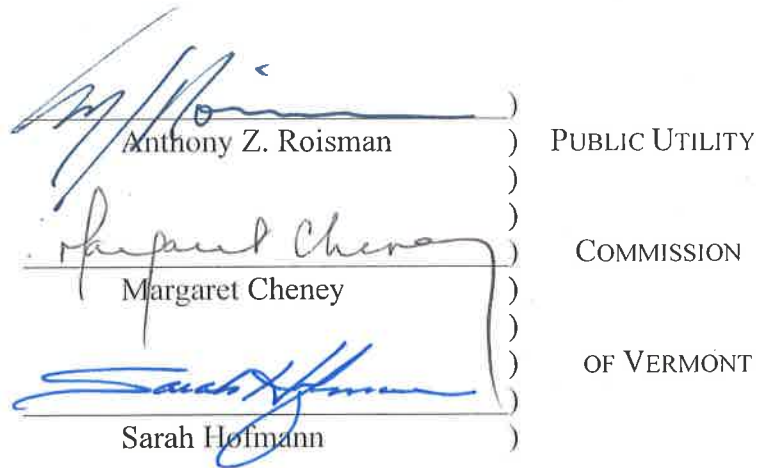 )
Anthony Z. Roisman ) PUBLIC UTILITY
)
)
Margaret Cheney ) COMMISSION
Margaret Cheney )
)
) OF VERMONT
)
Sarah Hofmann )